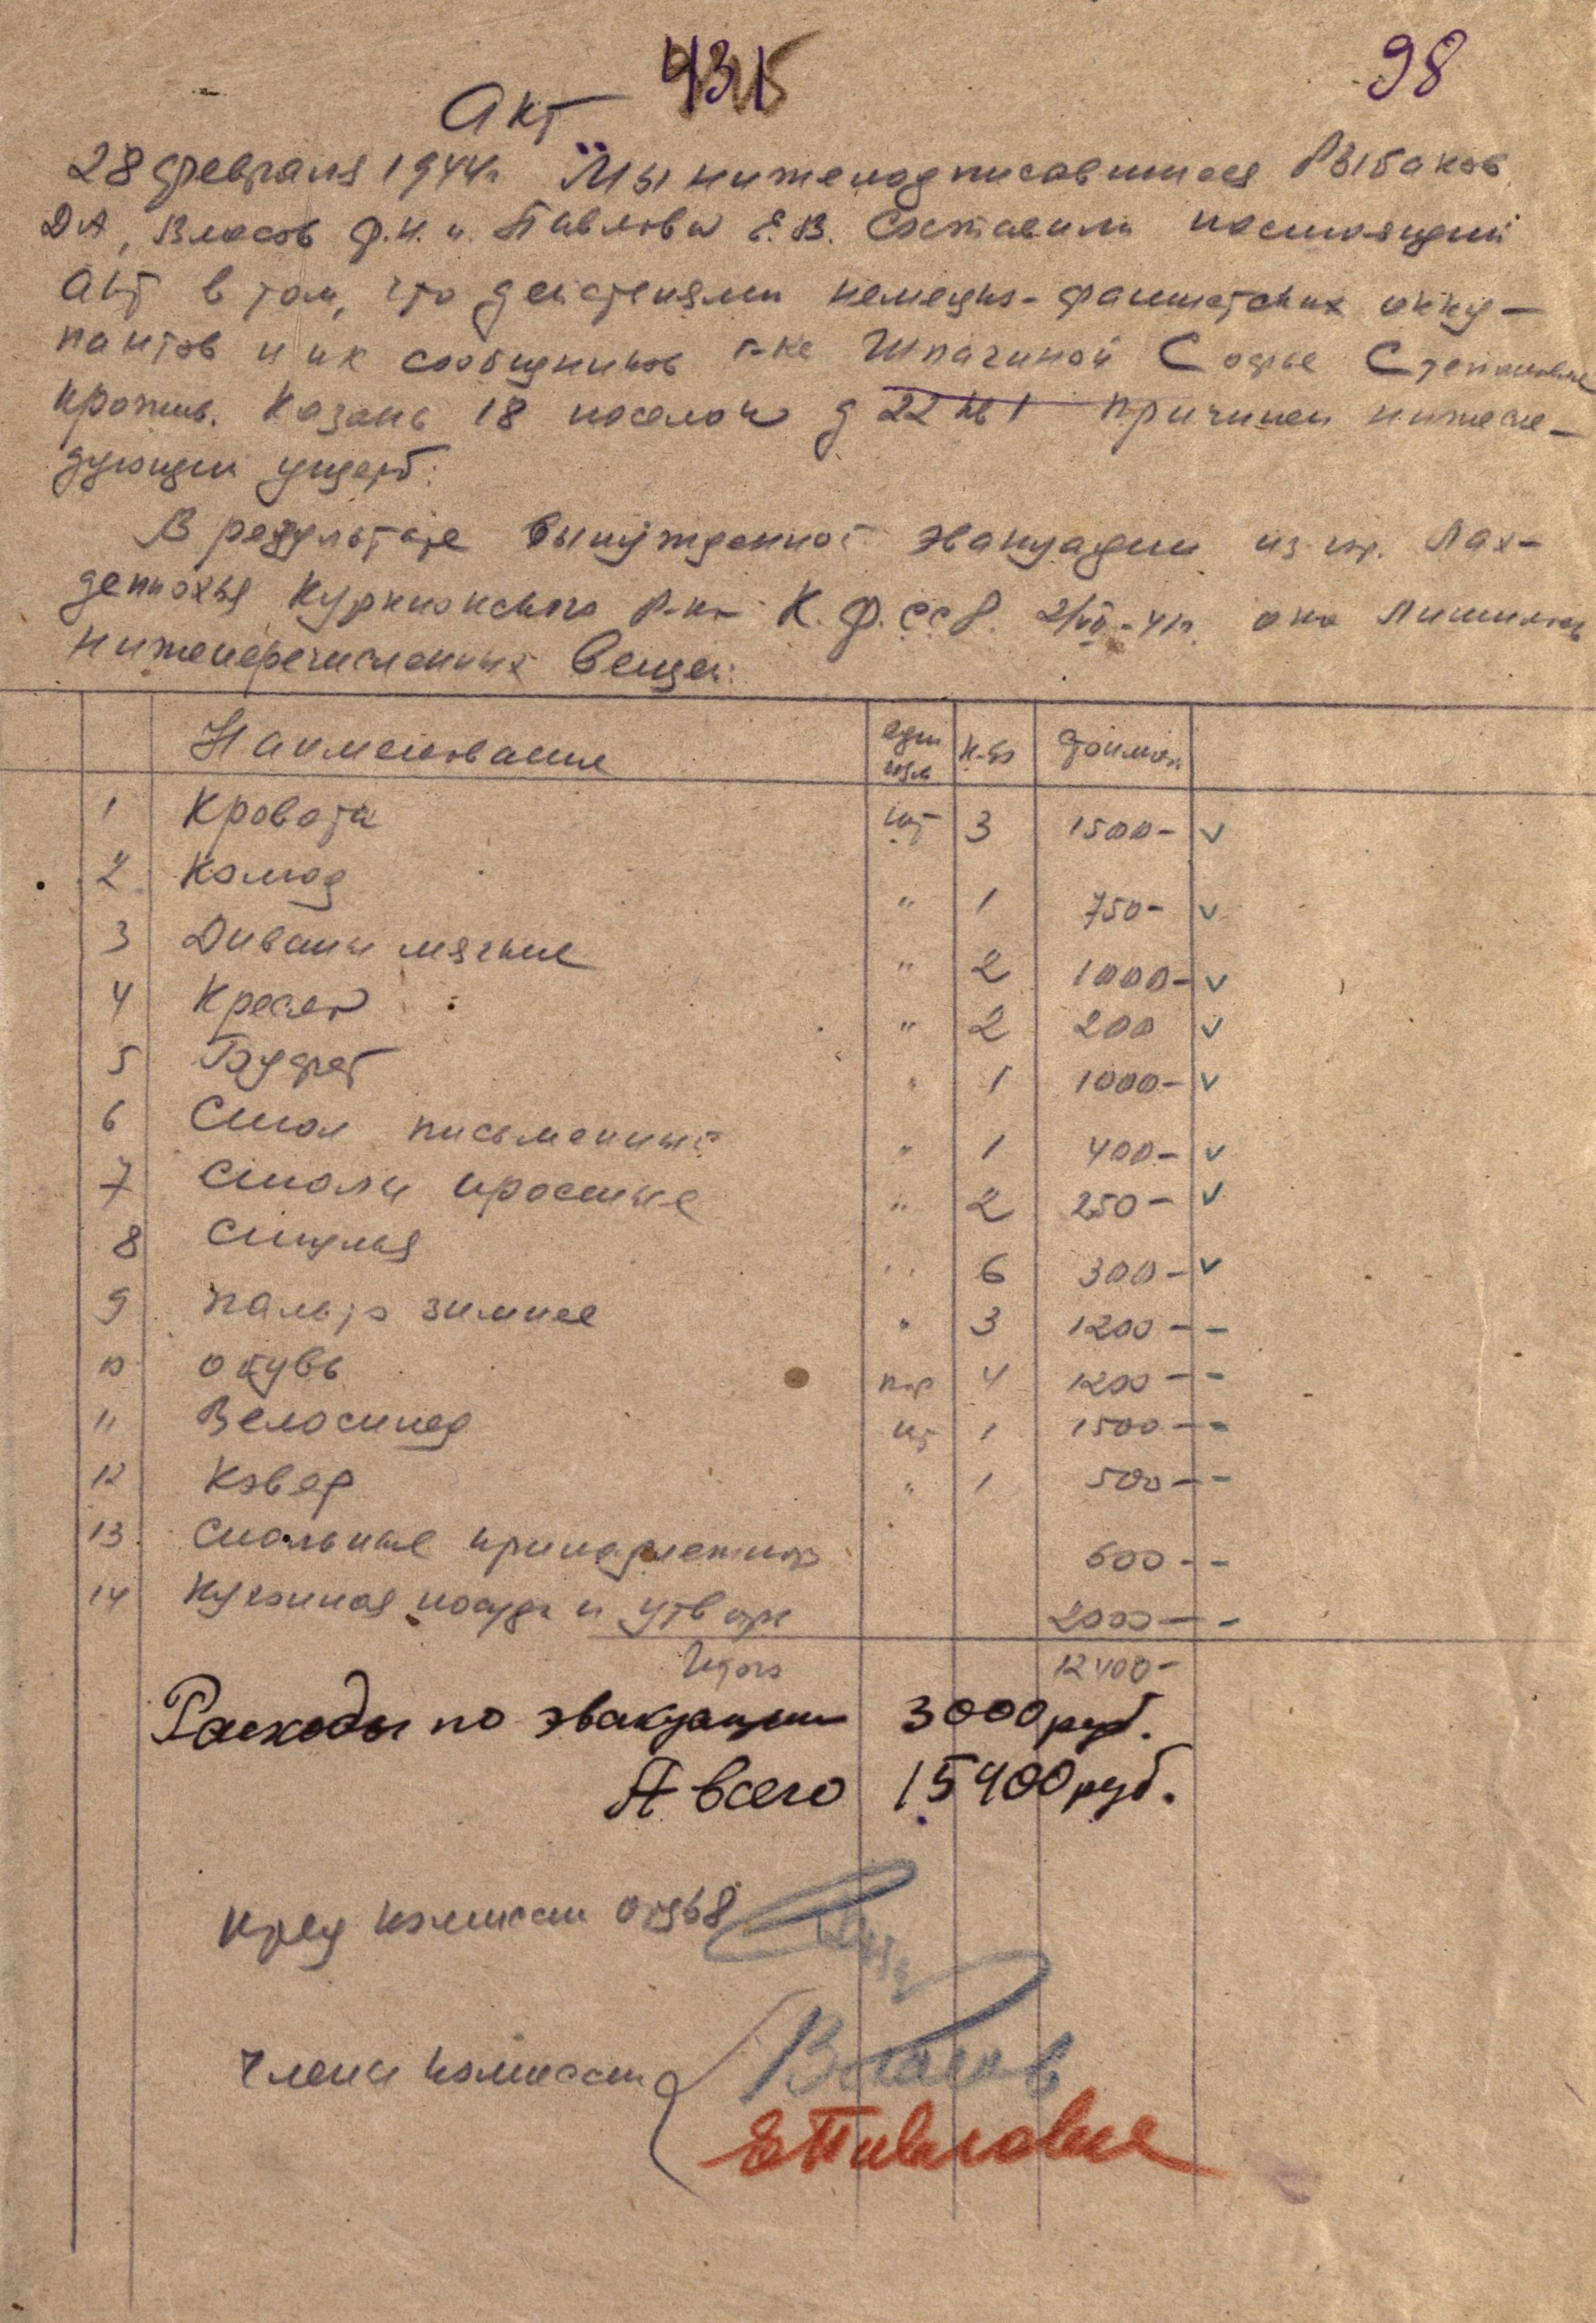 431
98
Акт
28 февраля 1944 г. Мы нижеподписавшиеся Рыбаков
Д.А, Власов Ф.И. и Павлова Е.В. составили настоящий
акт в том, что действиями немецко-фашистских окку-
пантов и их сообщников г-ке Шпагиной Софье Степановне
прожив. Казань 18 поселок д 22 кв 1 причинен нижесле-
дующий ущерб:
В результате вынужденной эвакуации из м. Лах-
денпохья Куркиокского р-на К.Ф.ССР. 2/VII-41г. она лишилась
нижеперечисленных вещей:
Наименование един изм к-во стоимость
1 Кровати шт 3 1500- ✓
2 Комод " 1 750- ✓
3 Диваны мягкие " 2 1000- ✓
4 Кресла " 2 200 ✓
5 Буфет " 1 1000- ✓
6 Стол письменный " 1 400- ✓
7 Столы простые " 2 250- ✓
8 Стулья " 6 300- ✓
9 Пальто зимнее " 3 1200- -
10 Обувь пар 4 1200- -
11 Велосипед шт 1 1500- -
12 Ковер " 1 500- -
13 Спальные принадлежности 600- -
14 Кухонная посуда и утварь 2000- -
Итого 12400-
Расходы по эвакуации 3000 руб.
А всего 15400 руб.
Пред комиссии
Члены комиссии Власов
ЕПавлова